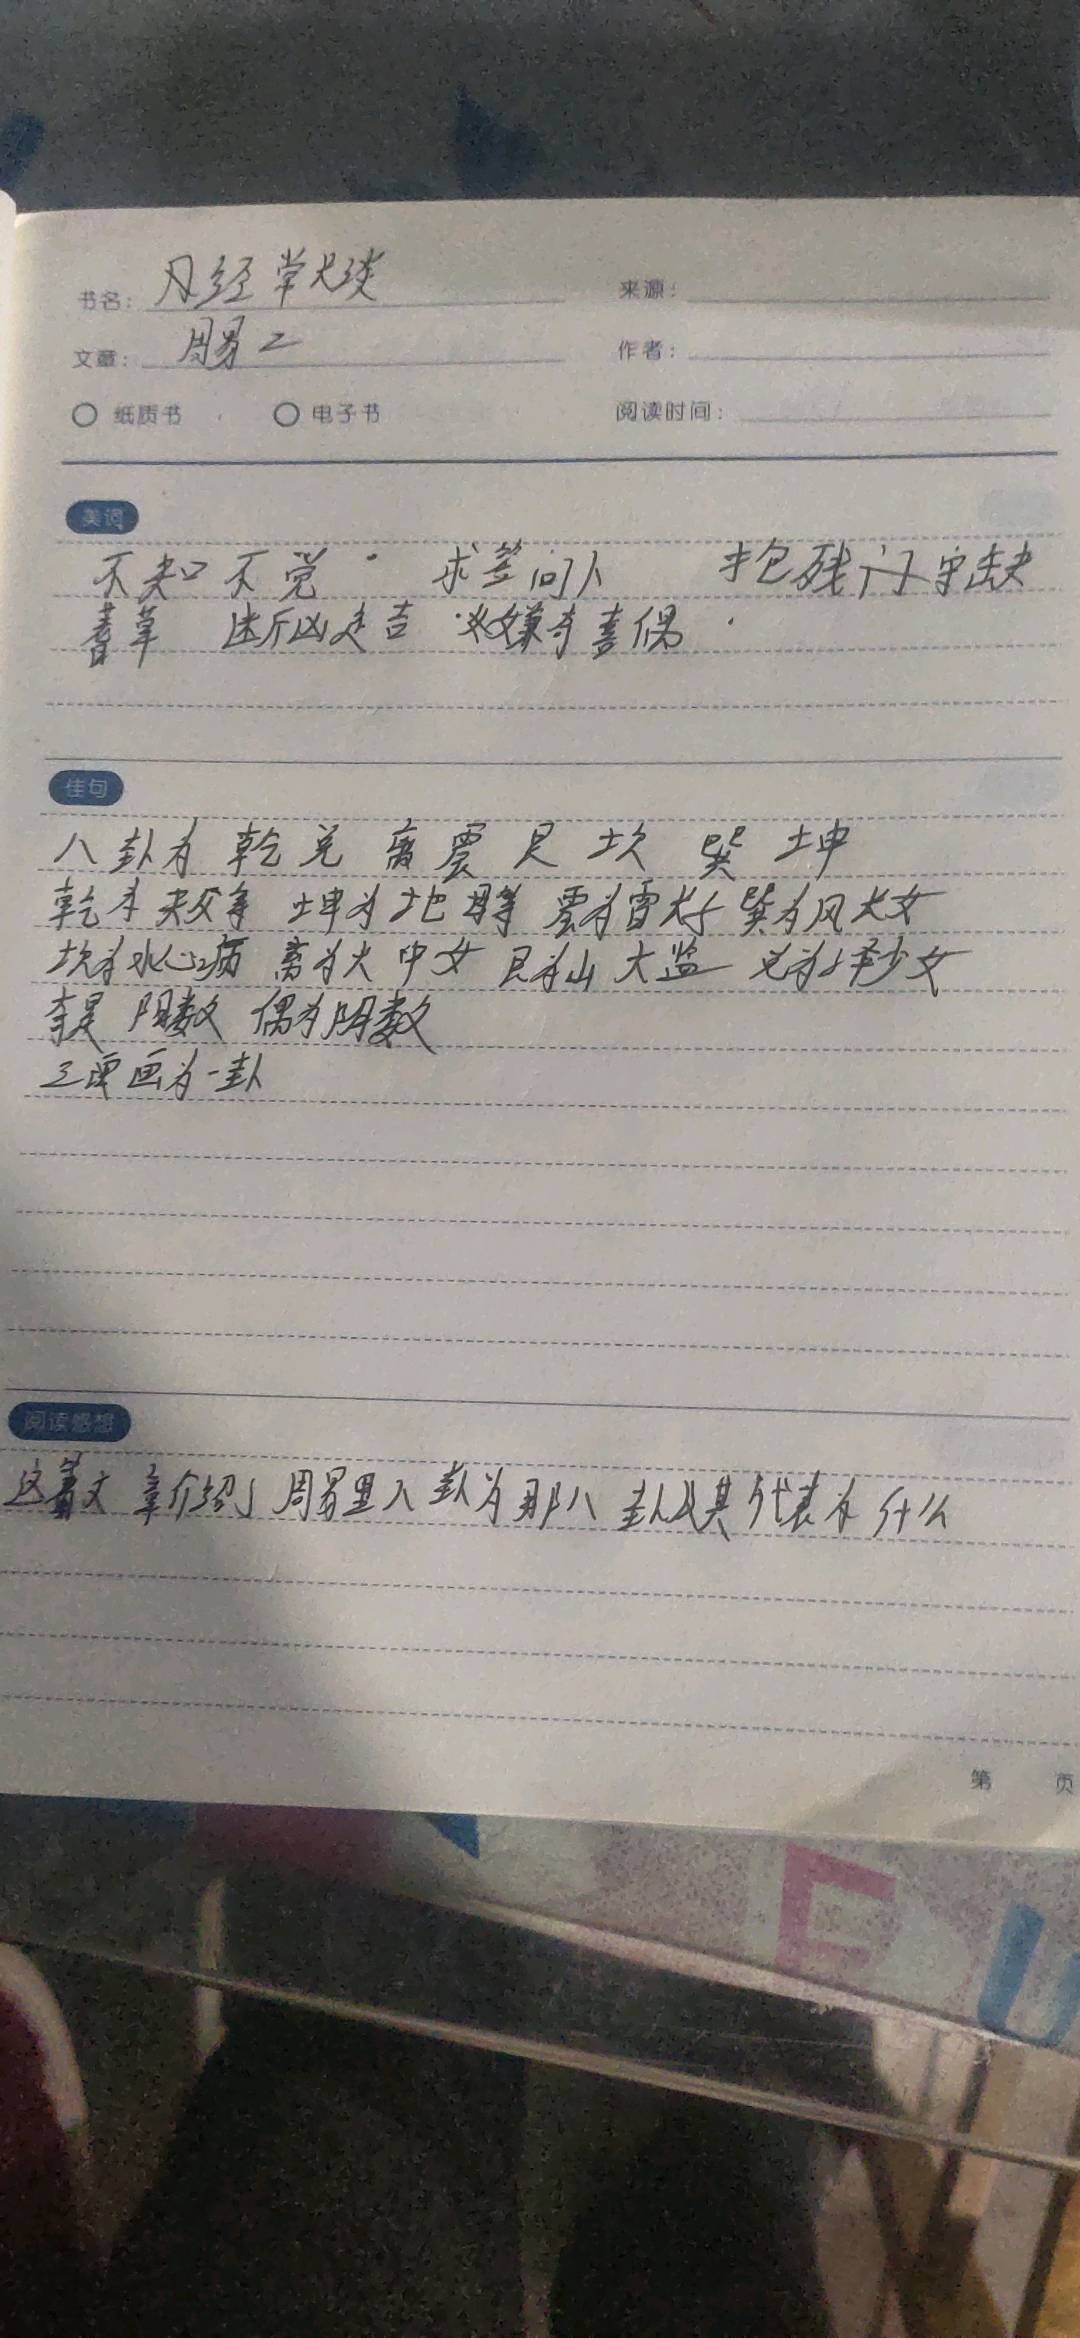 书名: 经常谈 来源:
文章: 周易二 作者:
纸质书 电子书 阅读时间:
美词
不知不觉 求签问卜 抱残守缺
蓍草 断凶是吉 嫌奇喜偶
佳句
八卦为乾兑离震艮坎巽坤
乾 父等 坤为地母等 震为雷长子 巽为风长女
坎为水心病 离为火中女 艮为山 大监 兑为泽少女
奇是阳数 偶为阴数
三 画为一卦
阅读感想
这篇文章介绍了周易里八卦为那八卦以及其代表为什么
第 页
F U